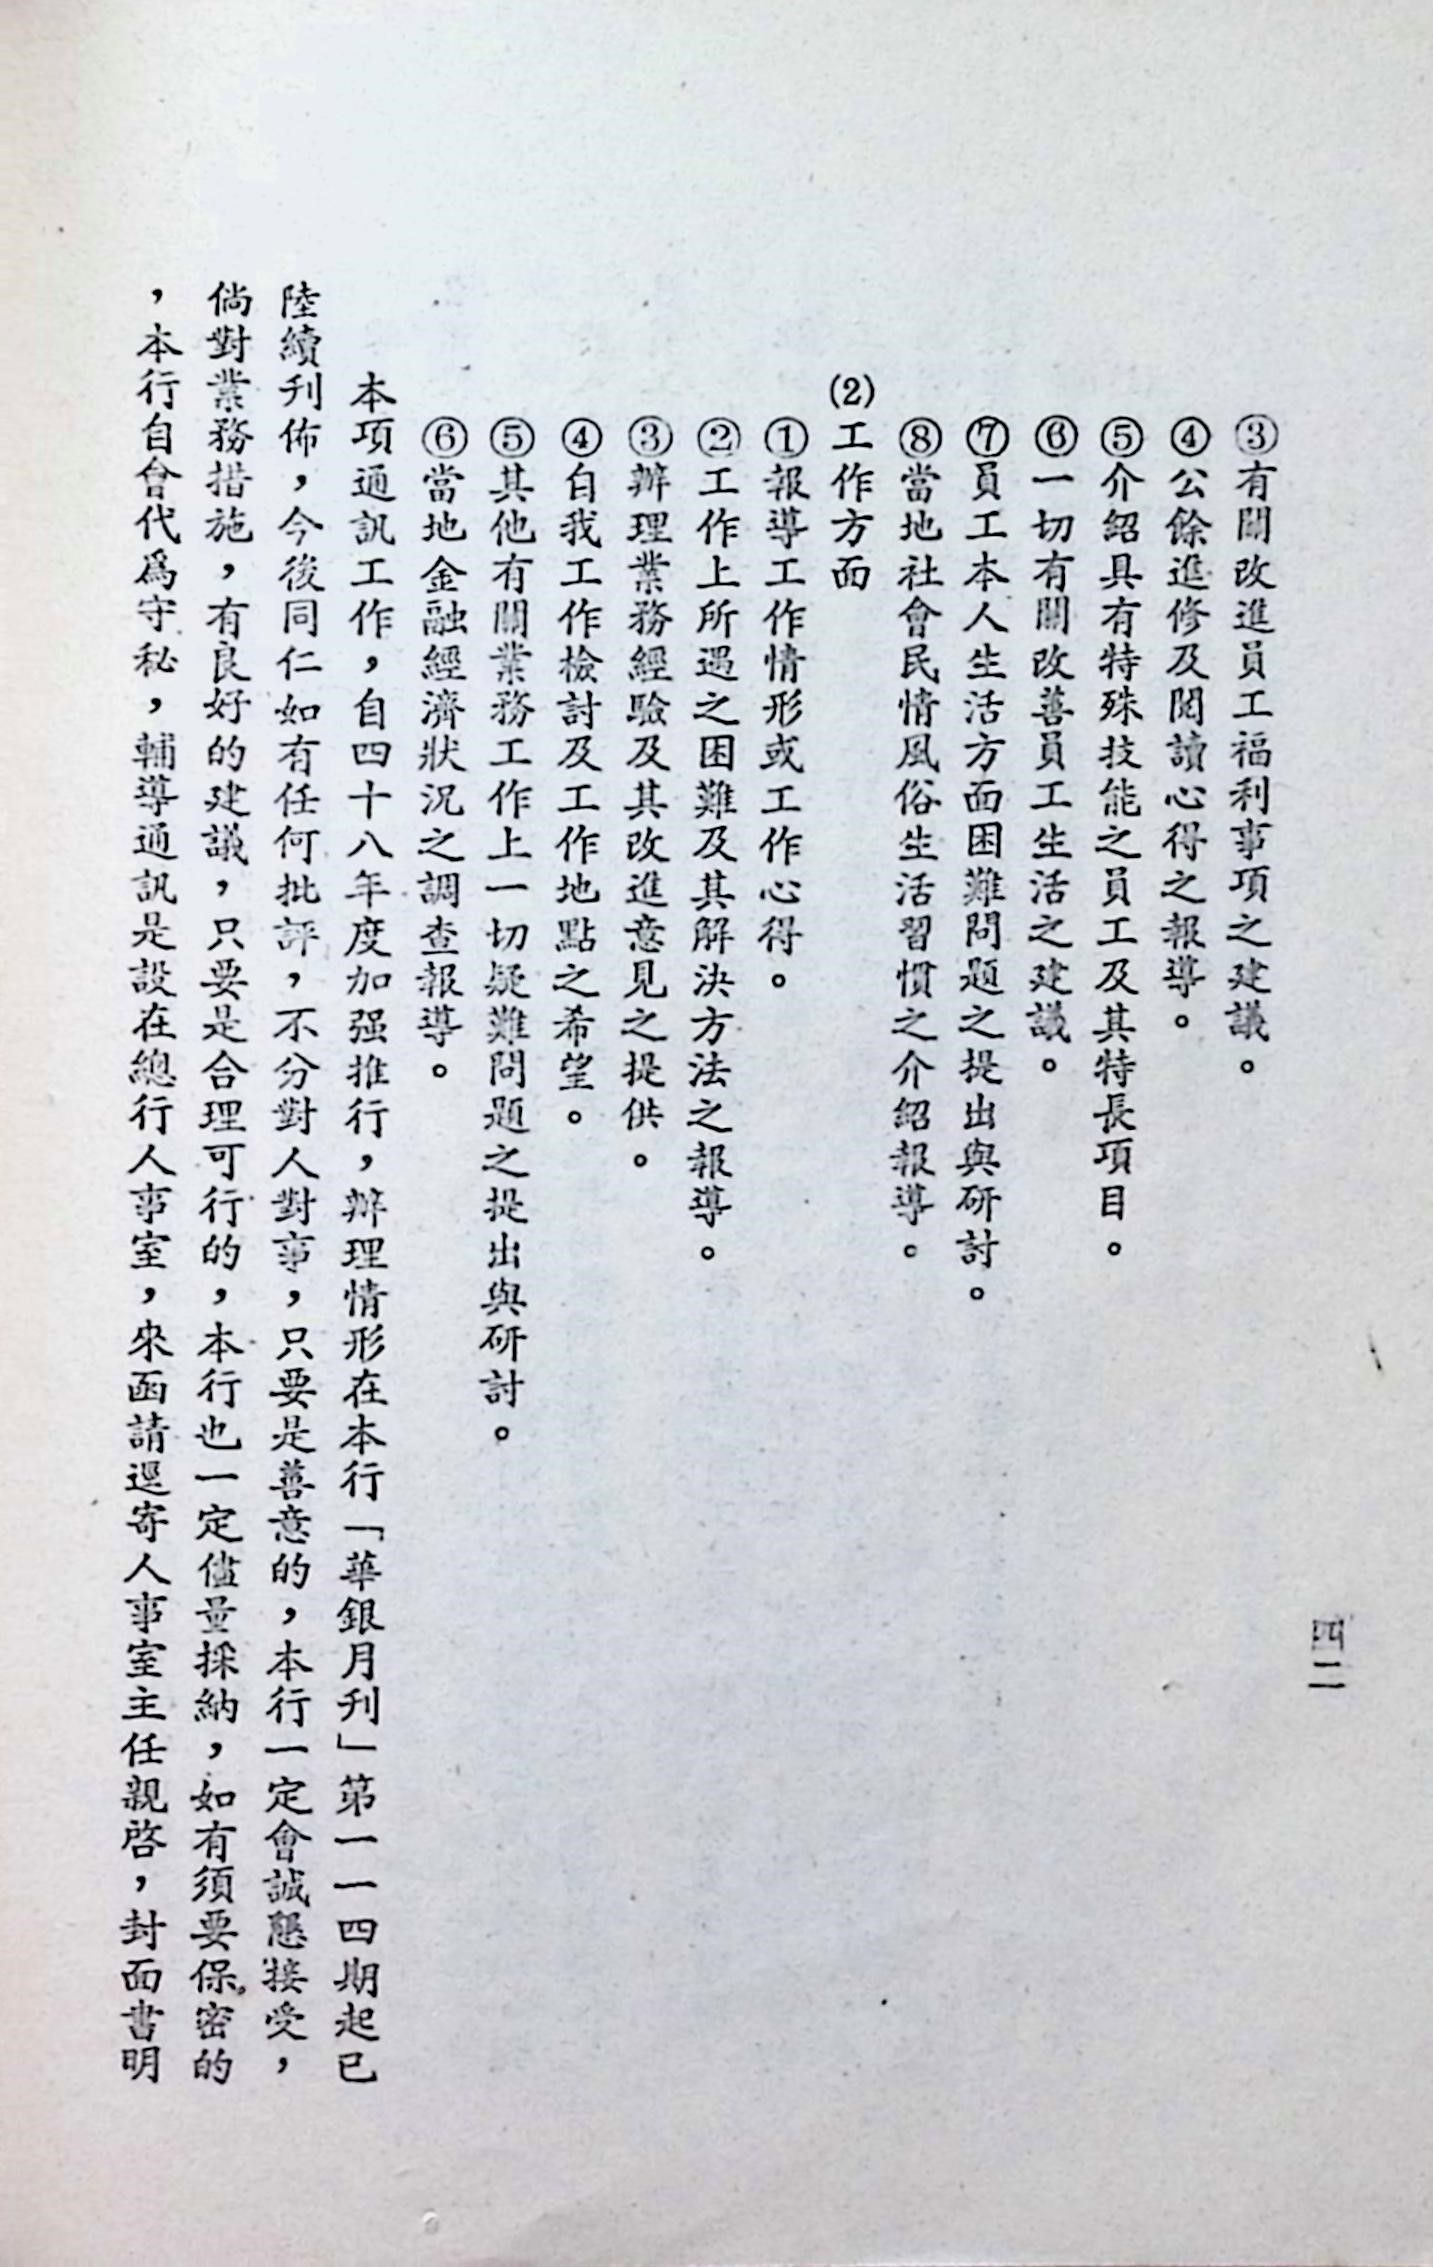 四二
③有關改進員工福利事項之建議。
④公餘進修及閱讀心得之報導。
⑤介紹具有特殊技能之員工及其特長項目。
⑥一切有關改善員工生活之建議。
⑦員工本人生活方面困難問題之提出與研討。
⑧當地社會民情風俗生活習慣之介紹報導。
(2)工作方面
①報導工作情形或工作心得。
②工作上所遇之困難及其解決方法之報導。
③辦理業務經驗及其改進意見之提供。
④自我工作檢討及工作地點之希望。
⑤其他有關業務工作上一切疑難問題之提出與研討。
⑥當地金融經濟狀況之調查報導。
本項通訊工作，自四十八年度加强推行，辦理情形在本行「華銀月刊」第一一四期起已
陸續刊佈，今後同仁如有任何批評，不分對人對事，只要是善意的，本行一定會誠懇接受，
倘對業務措施，有良好的建議，只要是合理可行的，本行也一定儘量採納，如有須要保密的
，本行自會代爲守秘，輔導通訊是設在總行人事室，來函請逕寄人事室主任親啓，封面書明